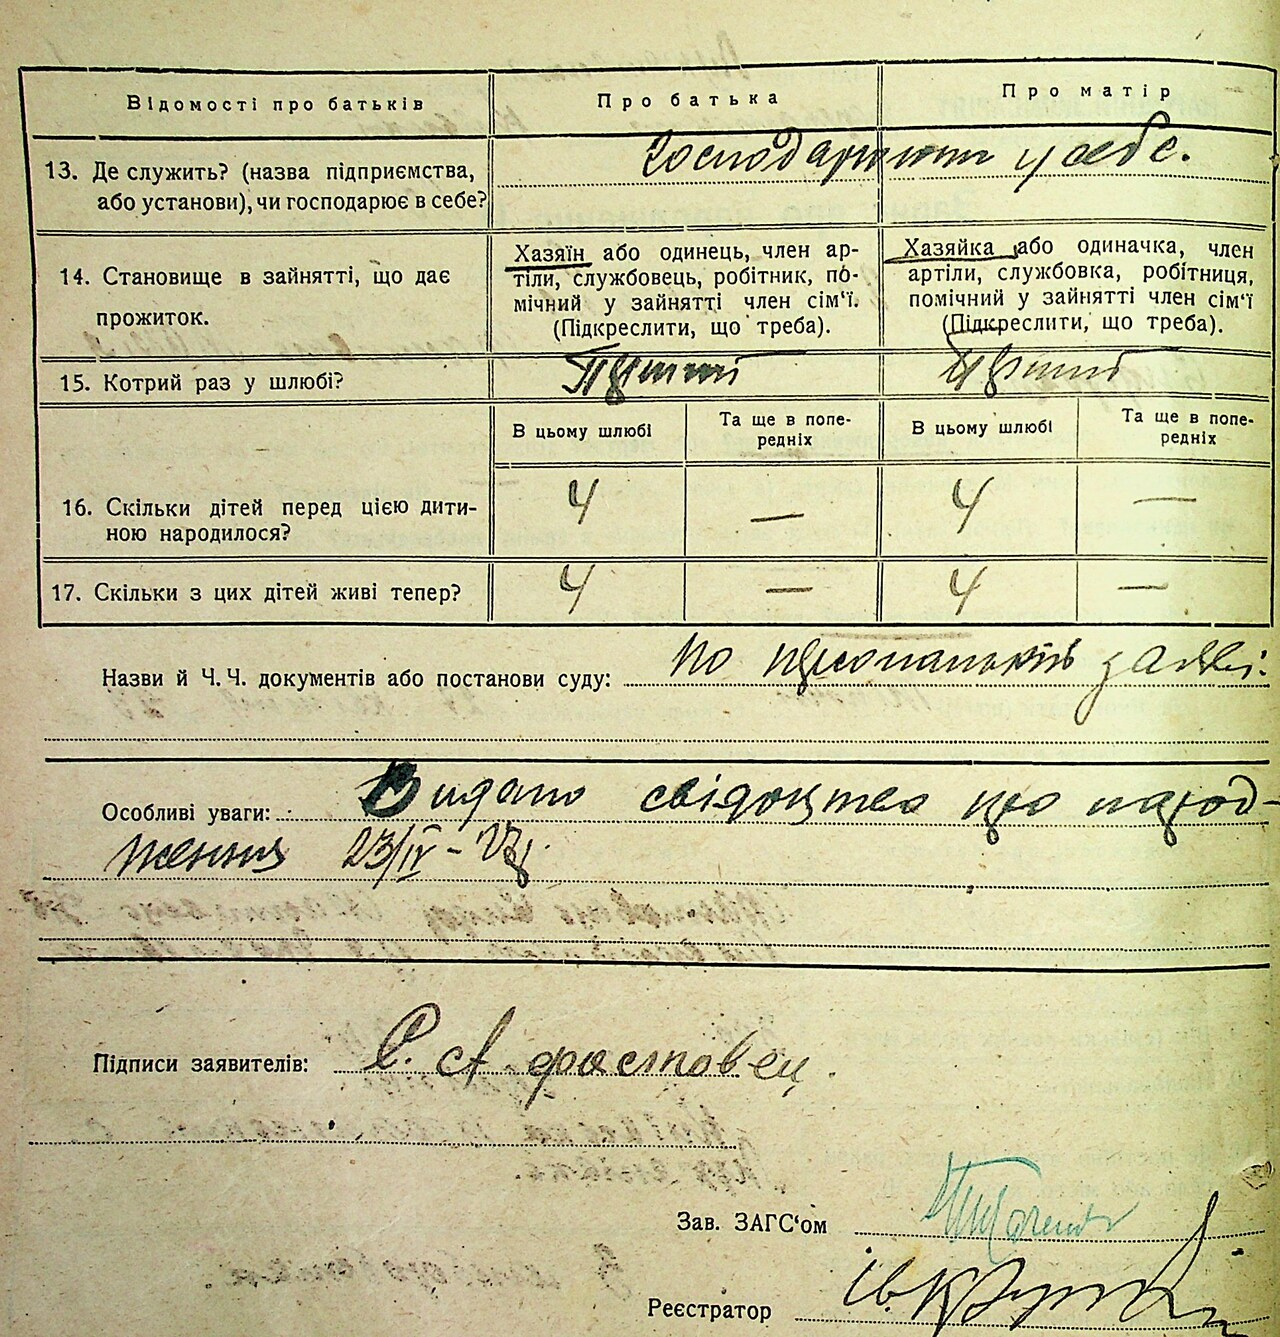 Відомості про батьків Про батька Про матір
13. Де служить? (назва підприємства, або установи), чи господарює в себе? Господарюють у себе.
14. Становище в зайнятті, що дає прожиток.
Хазяїн або одинець, член ар-
тіли, службовець, робітник, по-
мічний у зайнятті член сім'ї.
(Підкреслити, що треба).
Хазяйка або одиначка, член
артіли, службовка, робітниця,
помічний у зайнятті член сім'ї
(Підкреслити, що треба).
15. Котрий раз у шлюбі? Перший Перший
В цьому шлюбі Та ще в попе-
редніх В цьому шлюбі Та ще в попе-
редніх
16. Скільки дітей перед цією дити-
ною народилося? 4 — 4 —
17. Скільки з цих дітей живі тепер? 4 — 4 —
Назви й Ч. Ч. документів або постанови суду: по персональній заяві.
Особливі уваги: Видано свідоцтво про народ-
ження 23/IV – 27р.
Підписи заявителів: С. А. Фастовец.
Зав. ЗАГС'ом
Реєстратор